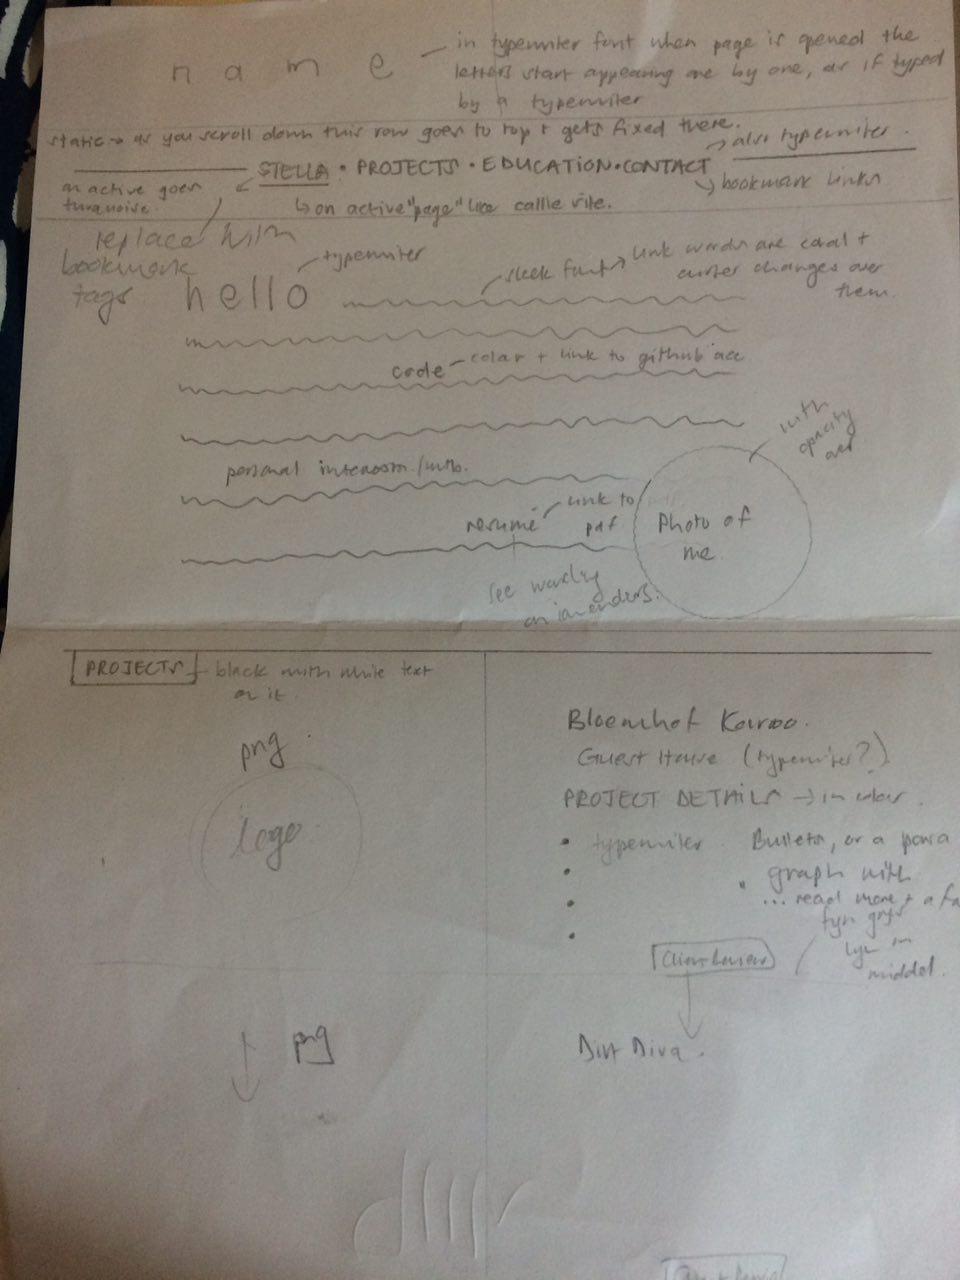 name
in typewriter font when page is opened the
letters start appearing one by one, as if typed
by a typewriter
static → as you scroll down this row goes to top + gets fixed there.
→ also typewriter.
STELLA • PROJECTS • EDUCATION • CONTACT
on active goes
turquoise.
↳ on active "page" like callie
↳ bookmark links
replace with
bookmark
tags
typewriter
hello
sleek font → link words are coral +
cursor changes over
them.
code - color + link to github acc
with
opacity
over
personal
resumé
link to
pdf
Photo of
me
see wording
on
PROJECTS - black with white text
on it.
png
logo
Bloemhof Karoo.
Guest House (typewriter?)
PROJECT DETAILS → in colour.
• typewriter
Bullets, or a para
graph with
... read more + a
fyn grys
lyn in
middel.
Client Review
png
Dirt Diva.